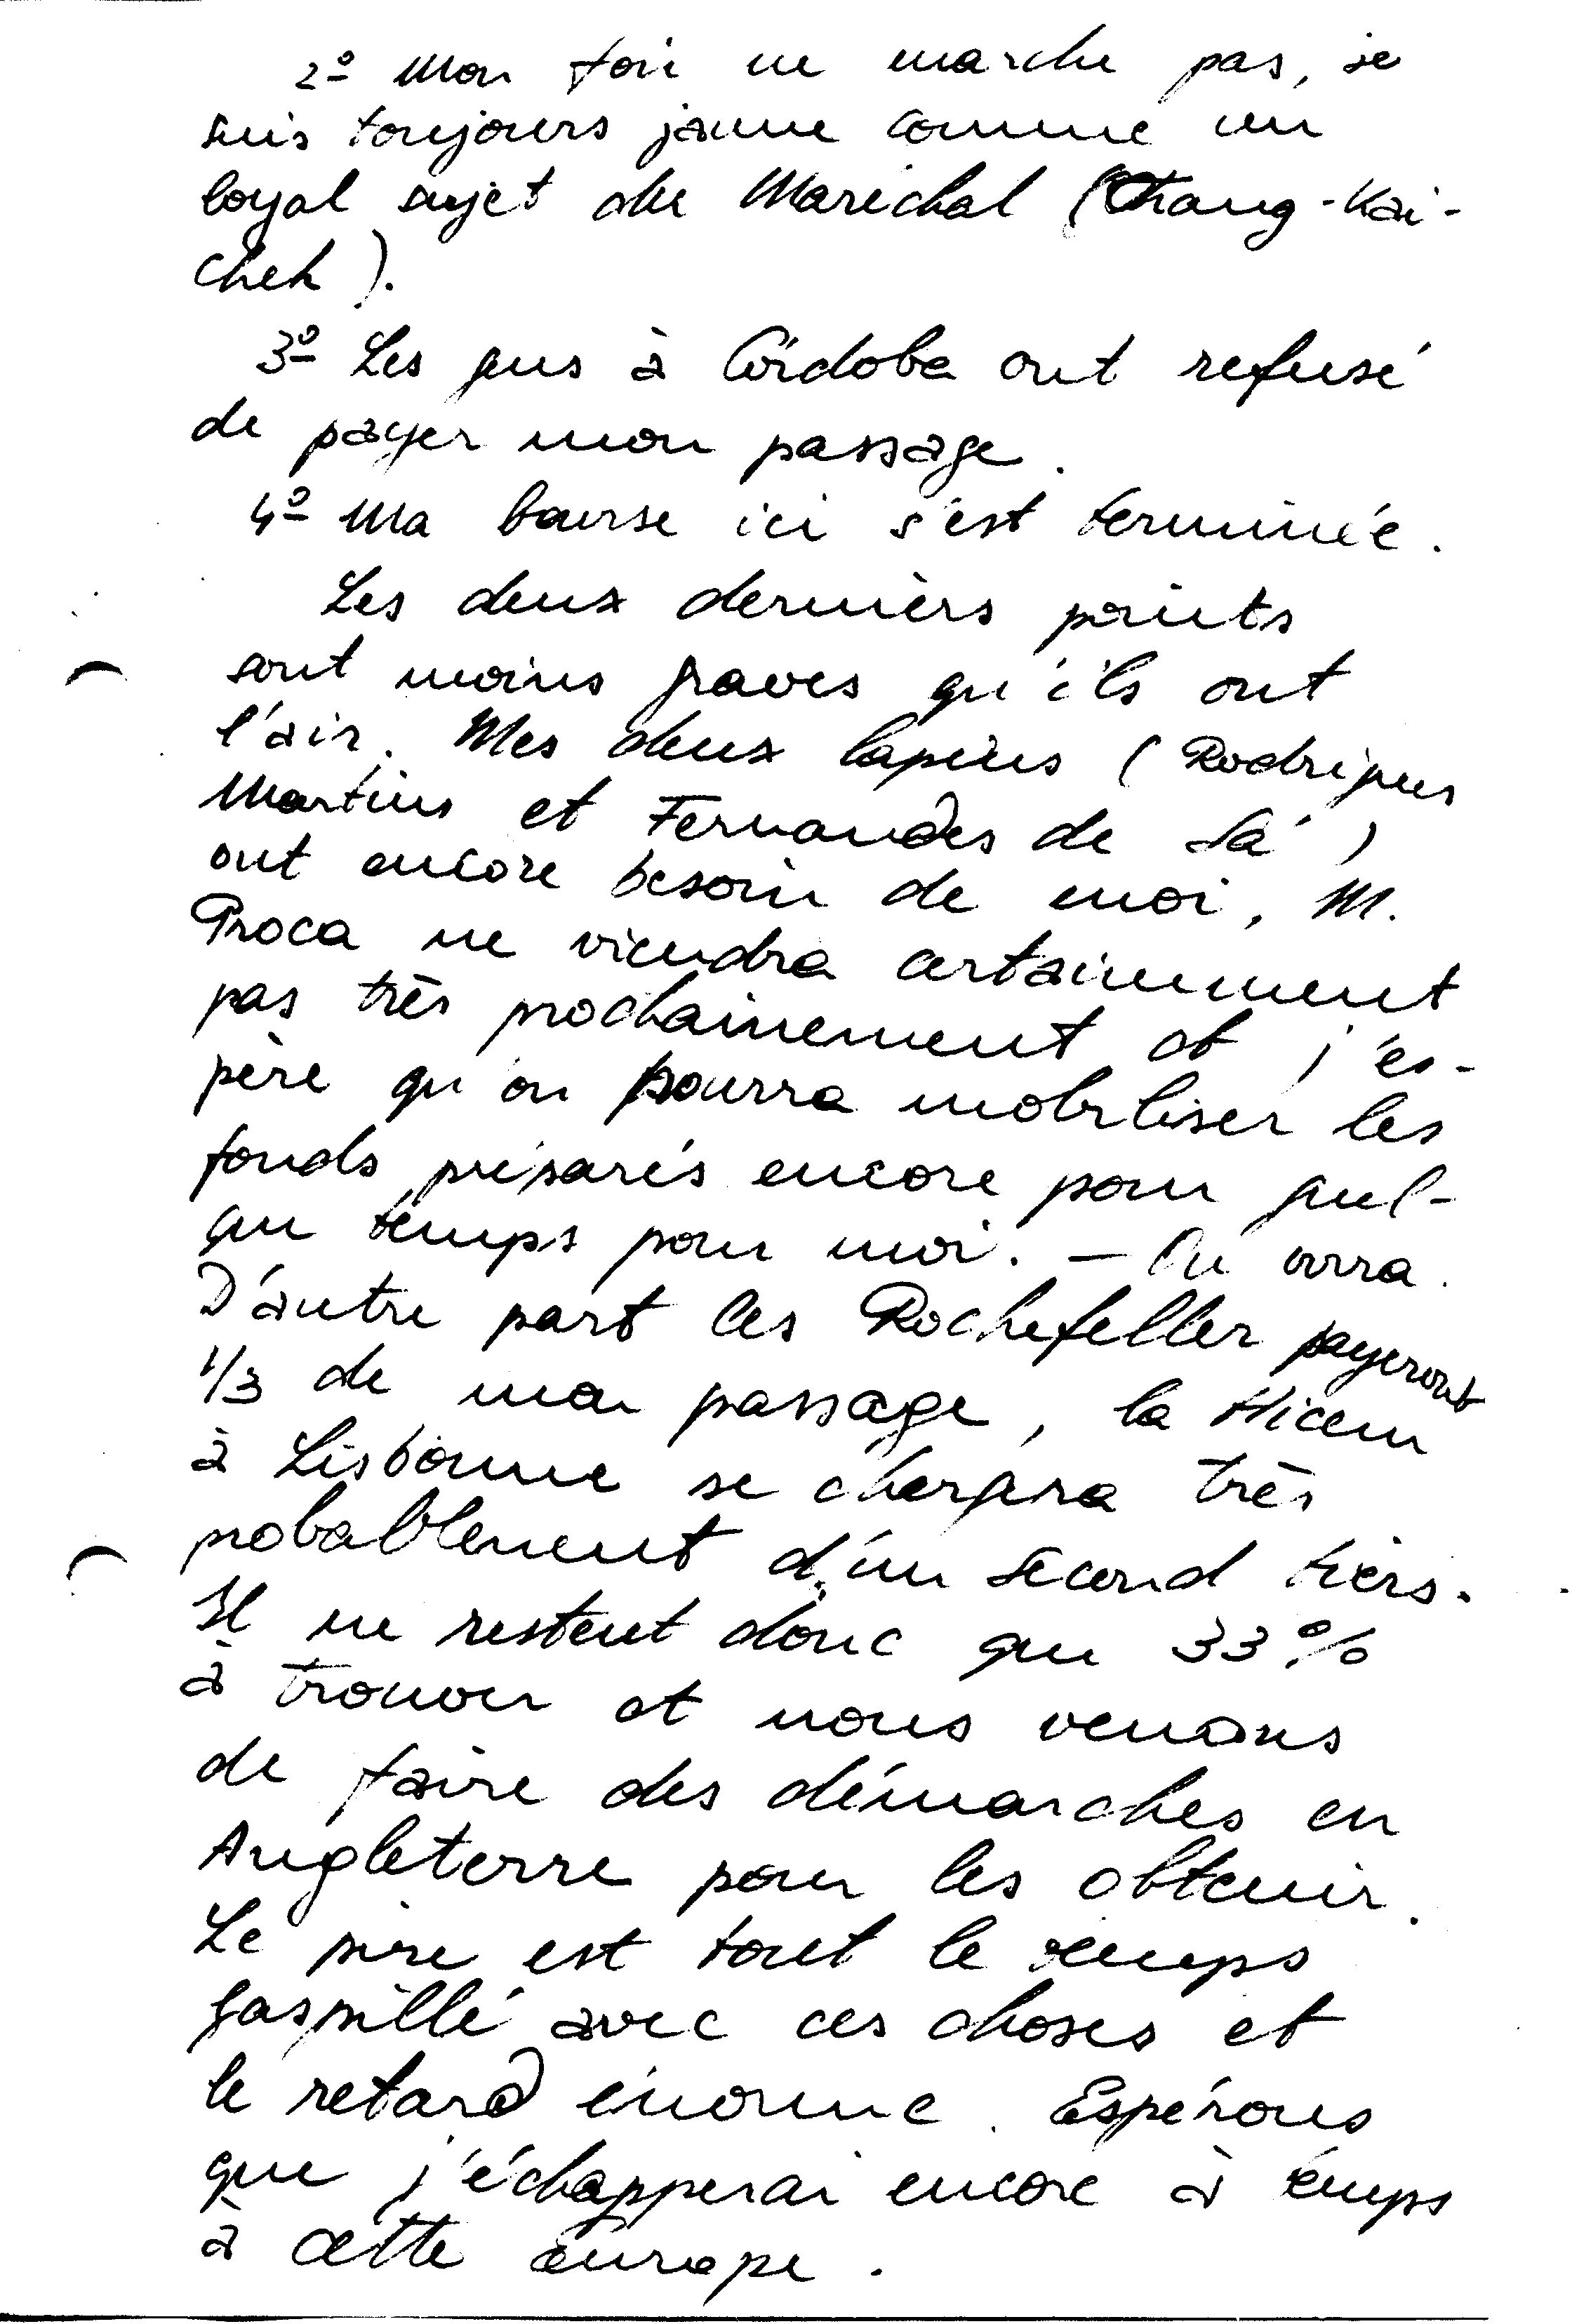 2º Mon foie ne marche pas, je
suis toujours jaune comme un
loyal sujet du Maréchal (Chang-Kai-
Chek).
3º Les gens à Córdoba ont refusé
de payer mon passage.
4º Ma bourse ici s'est terminée.
Les deux derniers points
sont moins graves qu'ils ont
l'air. Mes deux lapins (Rodrigues
Martins et Fernandes de Sá)
ont encore besoin de moi, M.
Proca ne viendra certainement
pas très prochainement et j'es-
père qu'on pourra mobiliser les
fonds préparés encore pour quel-
que temps pour moi. — On verra.
D'autre part les Rochefeller payeront
1/3 de mon passage, la Hicem
à Lisbonne se chargera très
probablement d'un second tiers.
Il ne restent donc que 33%
à trouver et nous venons
de faire des démarches en
Angleterre pour les obtenir.
Le pire est tout le temps
gaspillé avec ces choses et
le retard énorme. Espérons
que j'échapperai encore à temps
à cette Europe.